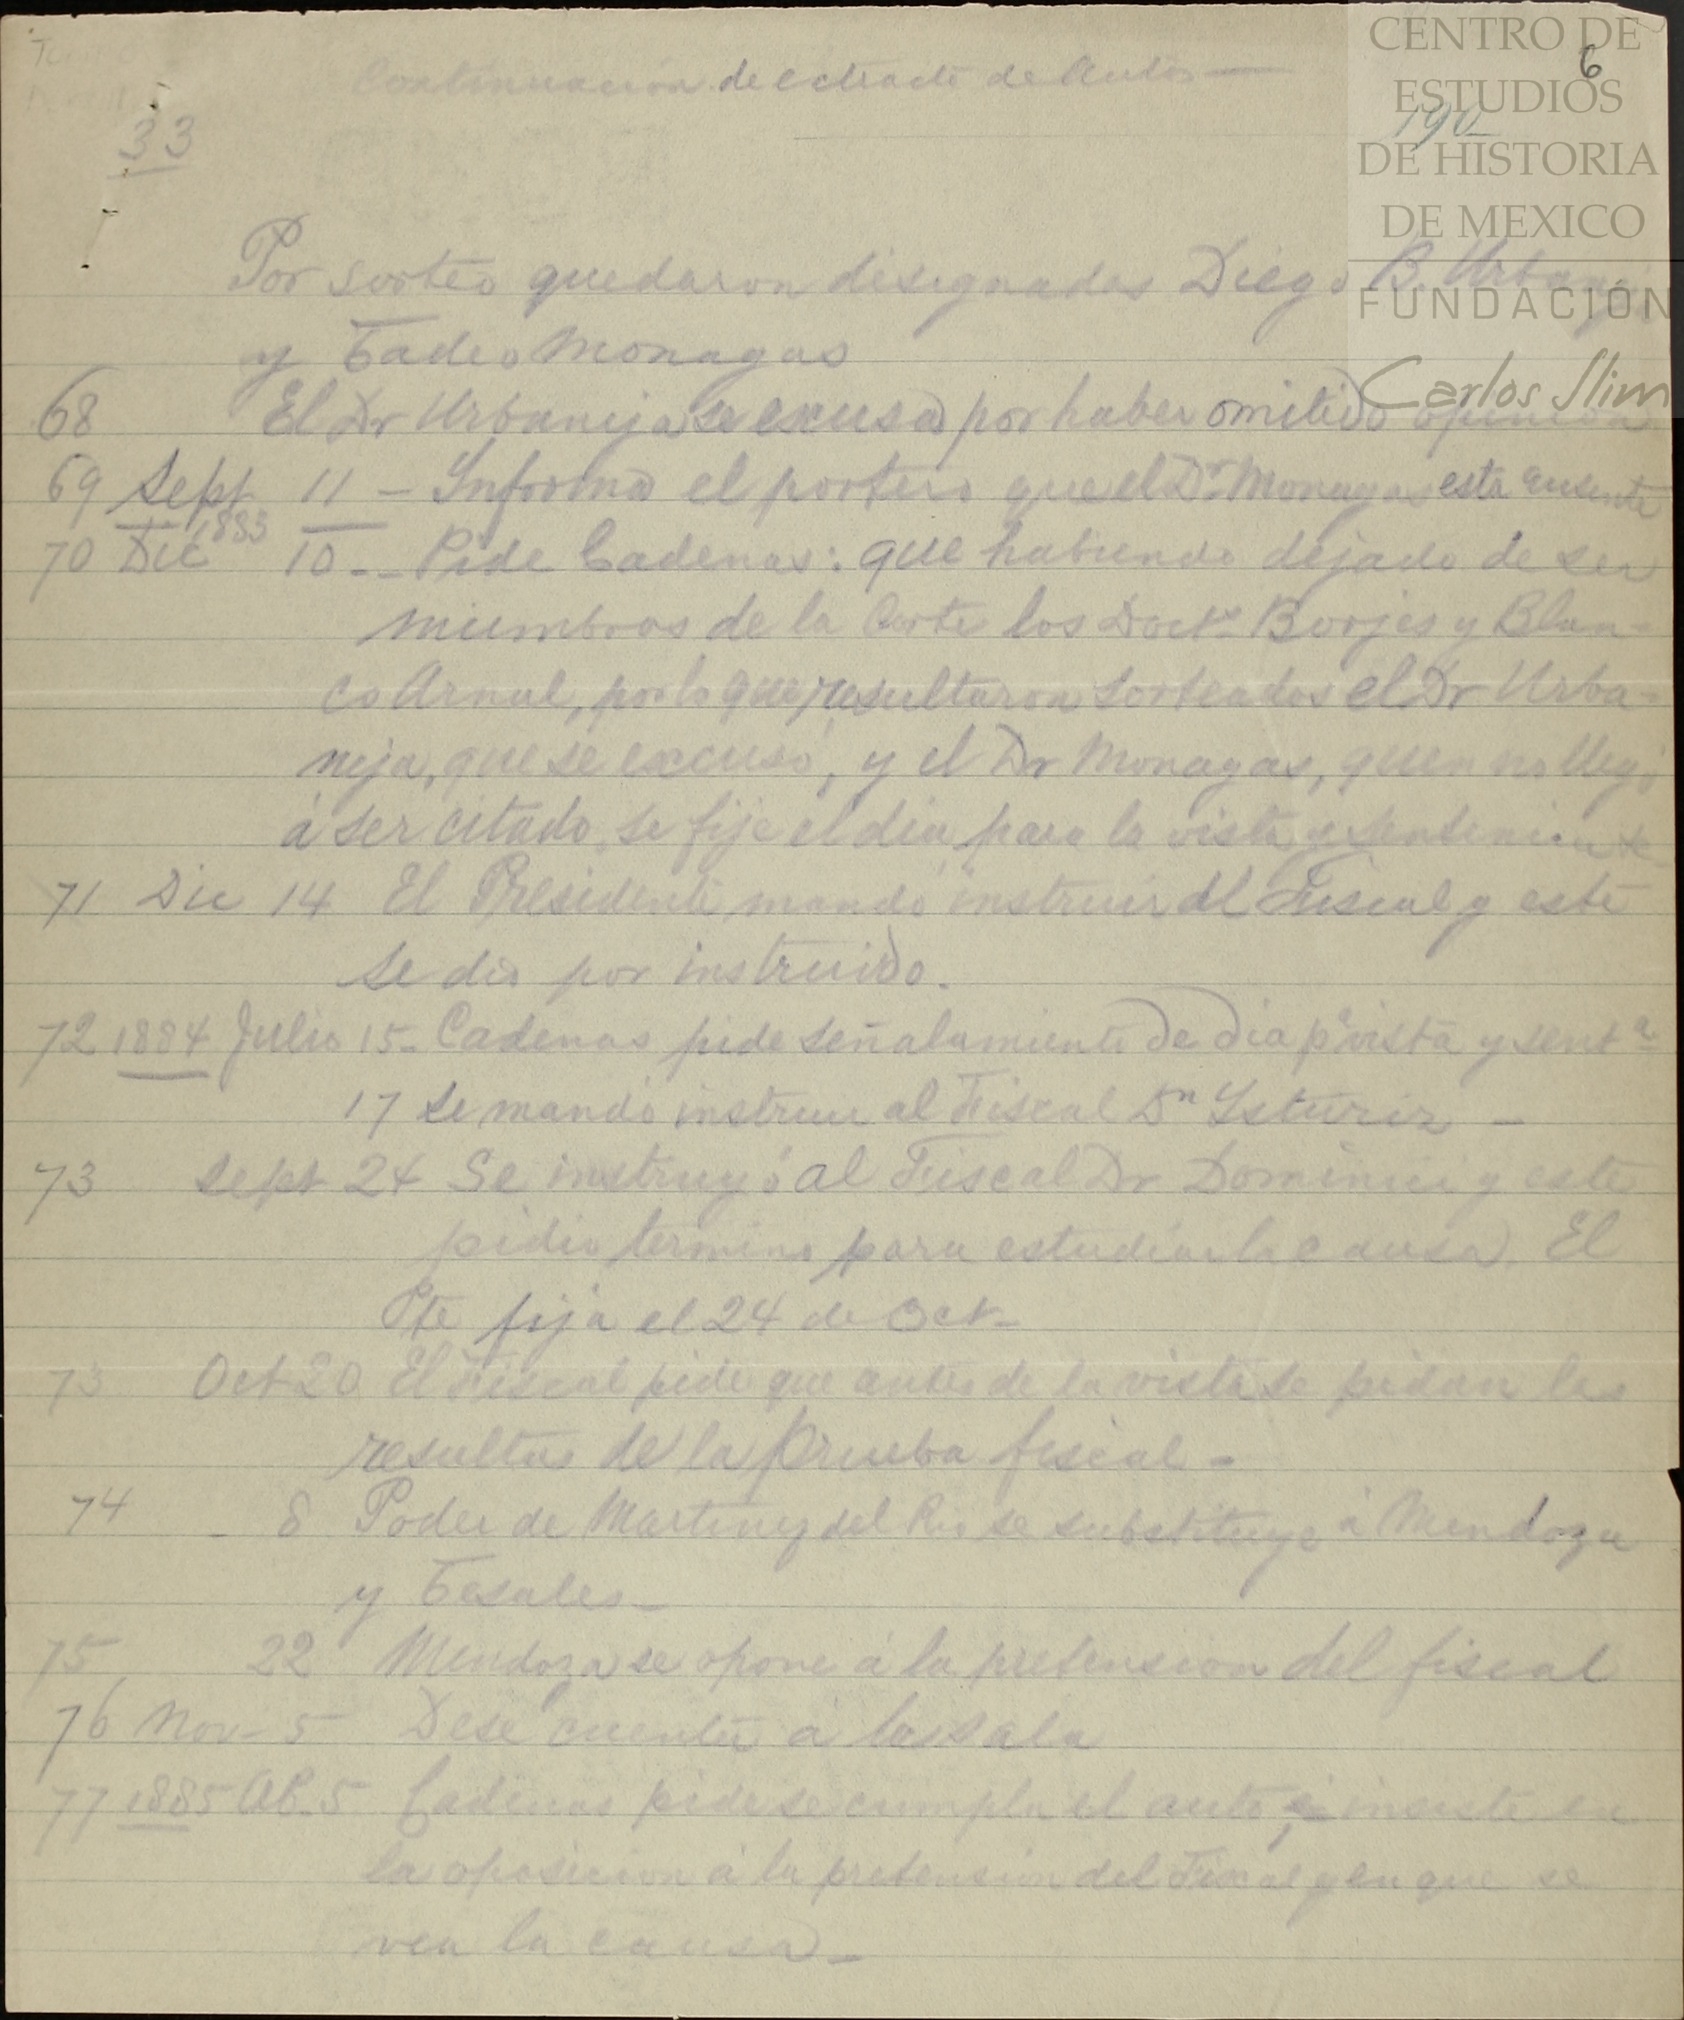 CENTRO DE
ESTUDIOS
DE HISTORIA
DE MEXICO
FUNDACIÓN
Carlos Slim
6
190
Continuacion de extracto de Autos —
33
Por sorteo quedaron designados Diego B. Urbaneja
y Tadeo Monagas
68 El Dr Urbaneja se excusa por haber omitido opinion
69 Sept 11 — Informa el portero que el Dr Monagas esta ausente
70 Dic 1883 10 -- Pide Cadenas: que habiendo dejado de ser
miembros de la Corte los Doct.s Borjes y Blan-
co Arnal, por lo que resultaron sorteados el Dr Urba-
neja, que se excusó, y el Dr Monagas, quien no llegó
á ser citado, se fije el dia para la vista y sentencia
71 Dic 14 El Presidente mandó instruir al Fiscal y este
se dio por instruido.
72 1884 Julio 15- Cadenas pide señalamiento de dia pa vista y senta
17 Se mandó instruir al Fiscal Dn Isturiz —
73 Sept 24 Se instruyó al Fiscal Dr Dominici y este
pidio termino para estudiar la causa. El
Pte fija el 24 de Oct-
73 Oct 20 El Fiscal pide que antes de la vista se pidan las
resultas de la prueba fiscal -
74 - 8 Poder de Martinez del Rio se substituye á Mendoza
y Tesales-
75 22 Mendoza se opone á la pretension del fiscal
76 Nov- 5 Dese cuenta á la sala
77 1885 Ab. 5 Cadenas pide se cumpla el auto, é insiste en
la oposicion á la pretension del Fiscal y en que se
vea la causa -